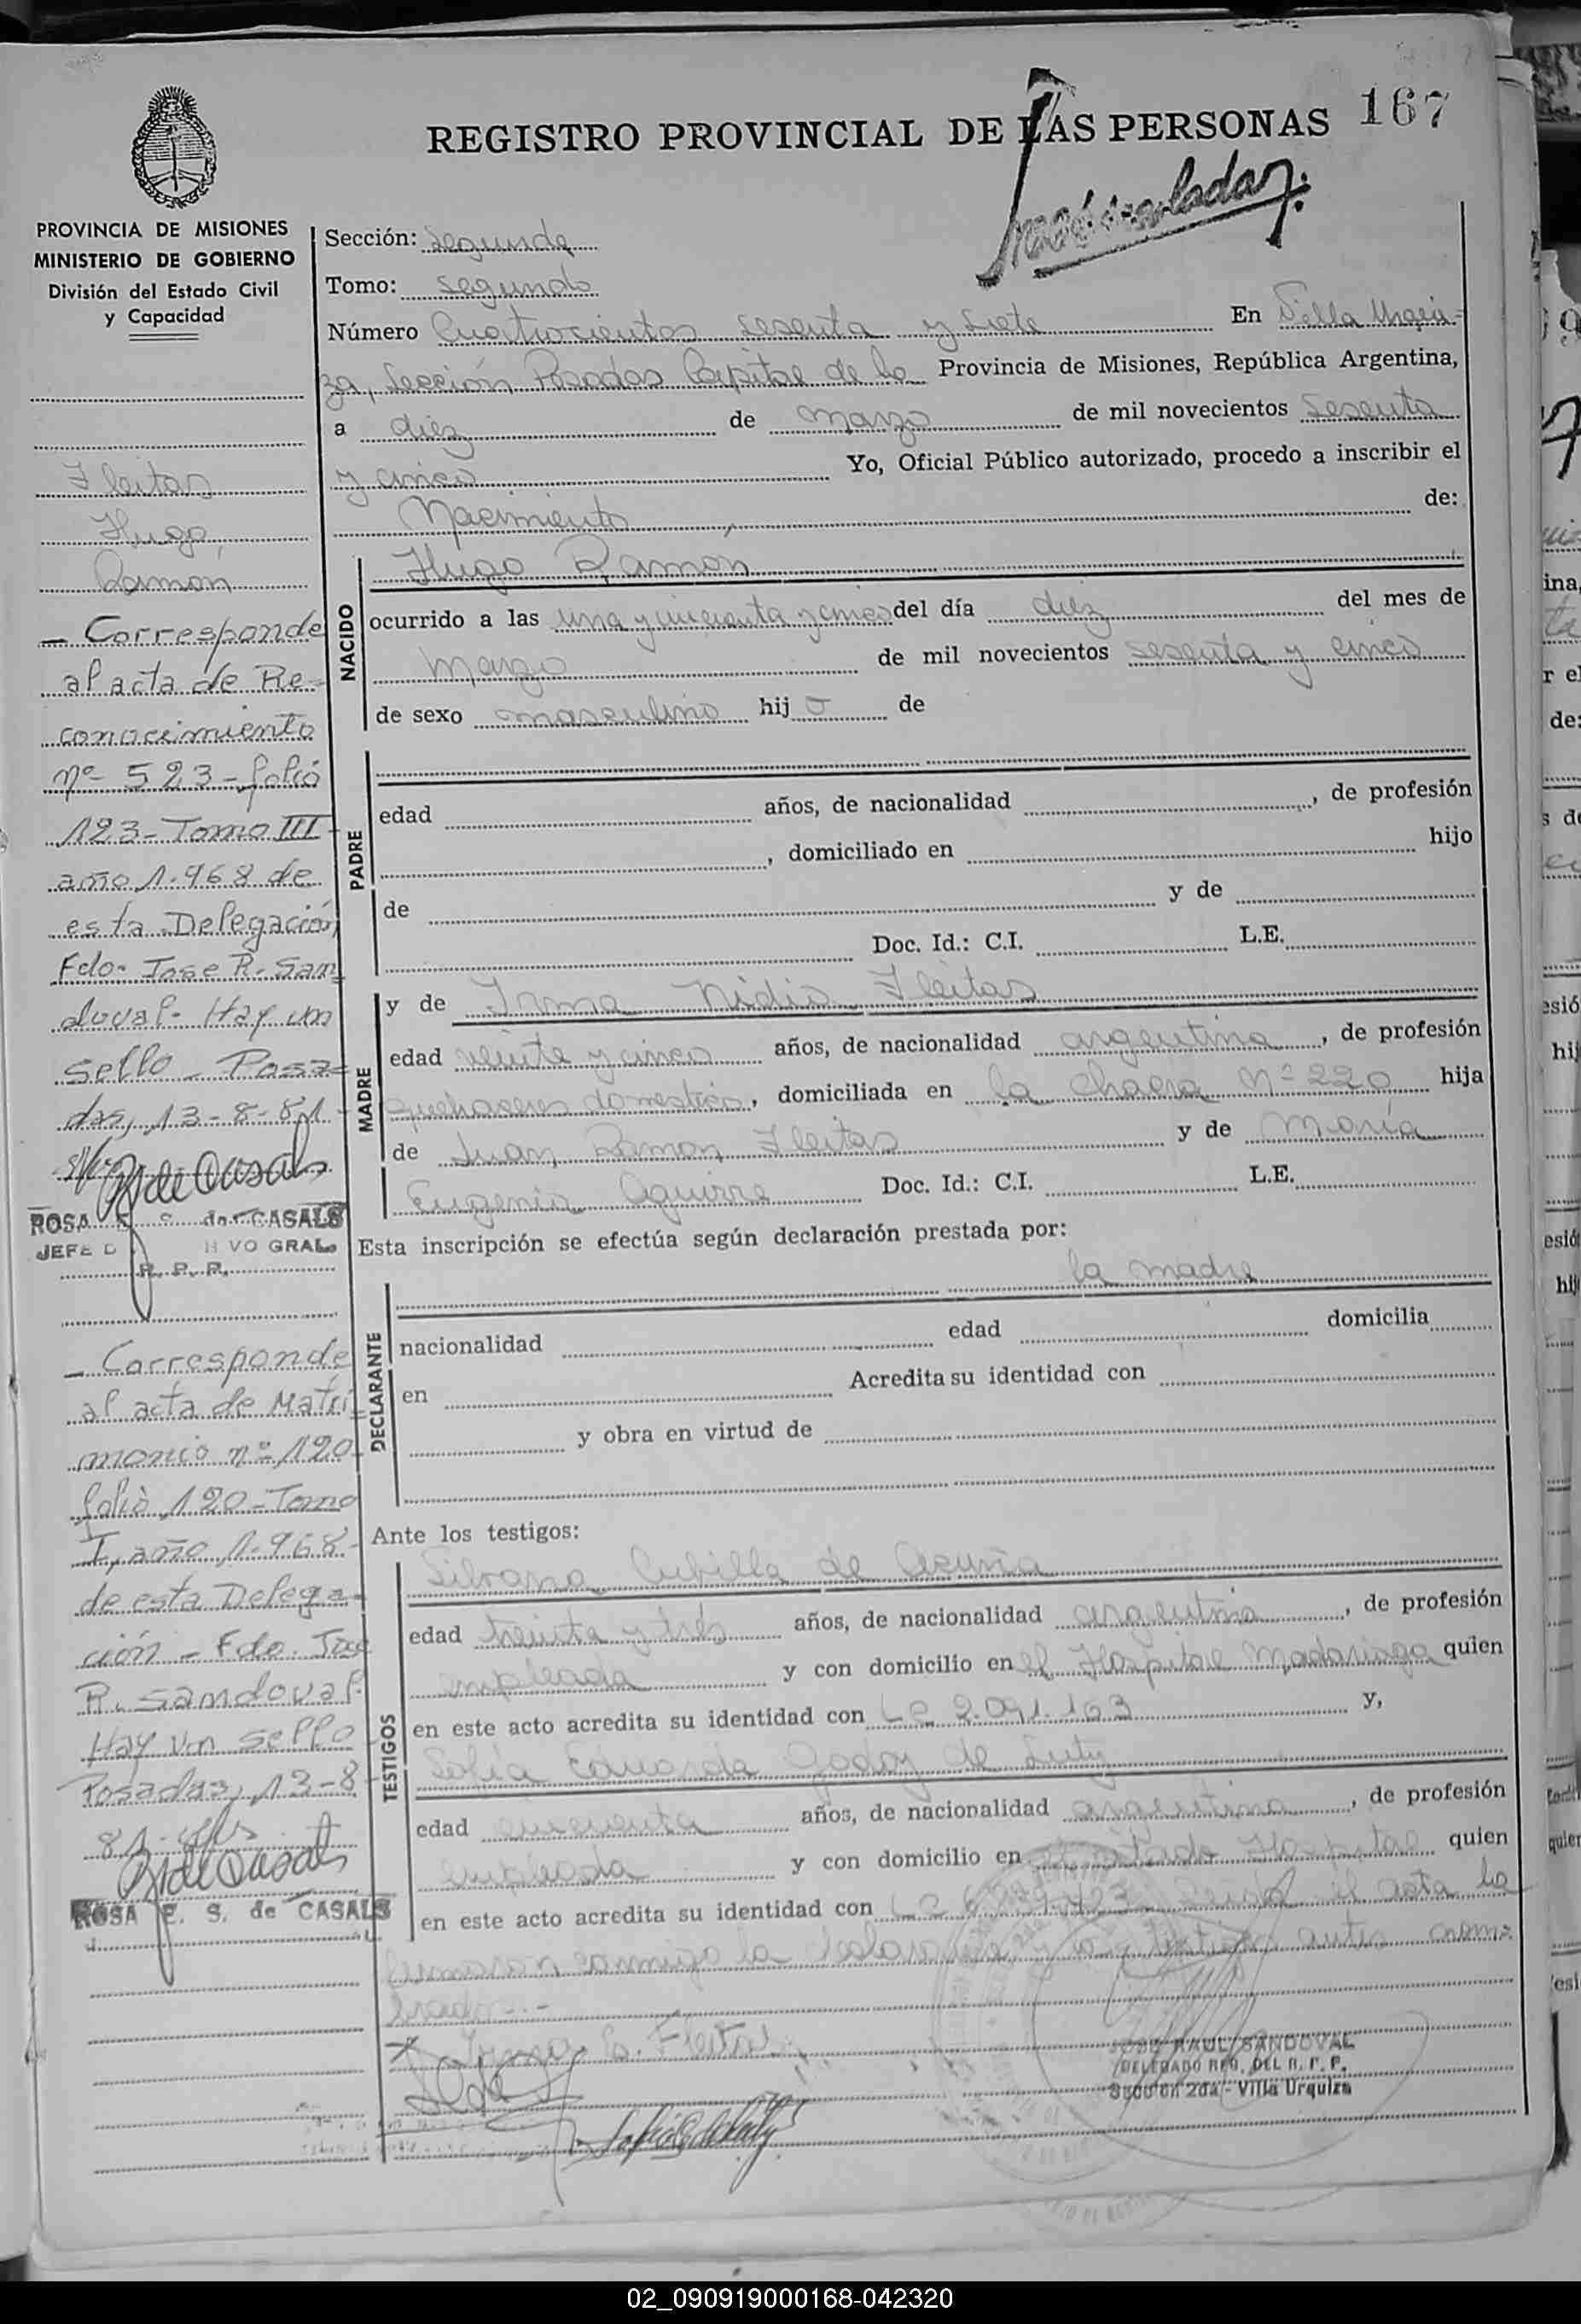 167
REGISTRO PROVINCIAL DE LAS PERSONAS
PROVINCIA DE MISIONES
MINISTERIO DE GOBIERNO
División del Estado Civil
y Capacidad
Fleitas
Hugo,
Ramón
— Corresponde
al acta de Re-
conocimiento
nº 523 - folio
123 - Tomo III -
año 1.968 de
esta Delegación,
Fdo. Jose R. San
doval. Hay un
sello - Posa=
das, 13-8-81 -
ROSA E. S. de CASALS
JEFE D H VO GRAL.
R. P. P.
— Corresponde
al acta de Matri=
monio nº 120-
folio 120 - Tomo
I, año 1.968 -
de esta Delega-
ción - Fdo. Jose
R. Sandoval.
Hay un sello
Posadas, 13-8-
81.
ROSA E. S. de CASALS
Sección: Segunda
Tomo: Segundo
Número Cuatrocientos sesenta y siete En Villa Urqui-
za, Sección Posadas Capital de la Provincia de Misiones, República Argentina,
a diez de marzo de mil novecientos sesenta
y cinco Yo, Oficial Público autorizado, procedo a inscribir el
Nacimiento, de:
NACIDO
Hugo Ramon
ocurrido a las una y cincuenta y cinco del día diez del mes de
marzo de mil novecientos sesenta y cinco
de sexo masculino hijo de
PADRE
edad años, de nacionalidad , de profesión
, domiciliado en hijo
de y de
Doc. Id.: C.I. L.E.
MADRE
y de Irma Nidia Fleitas
edad veinte y cinco años, de nacionalidad argentina, de profesión
quehaceres domesticos, domiciliada en la chacra Nº 220 hija
de Juan Ramon Fleitas y de María
Eugenia Aguirre Doc. Id.: C.I. L.E.
Esta inscripción se efectúa según declaración prestada por:
la madre
DECLARANTE
nacionalidad edad domicilia
en Acredita su identidad con
y obra en virtud de
Ante los testigos:
TESTIGOS
Silvana Cubilla de Acuña
edad treinta y tres años, de nacionalidad argentina, de profesión
empleada y con domicilio en el Hospital Madariaga quien
en este acto acredita su identidad con LC 2.091.163 y,
Sofía Eduarda Godoy de Luty
edad cincuenta años, de nacionalidad argentina, de profesión
empleada y con domicilio en el citado Hospital quien
en este acto acredita su identidad con LC el acta la
firmaron conmigo la declarante y los testigos antes nom=
brados.-
JOSE RAUL SANDOVAL
DELEGADO REG. DEL R. P. P.
Sección 2da - Villa Urquiza
02_090919000168-042320